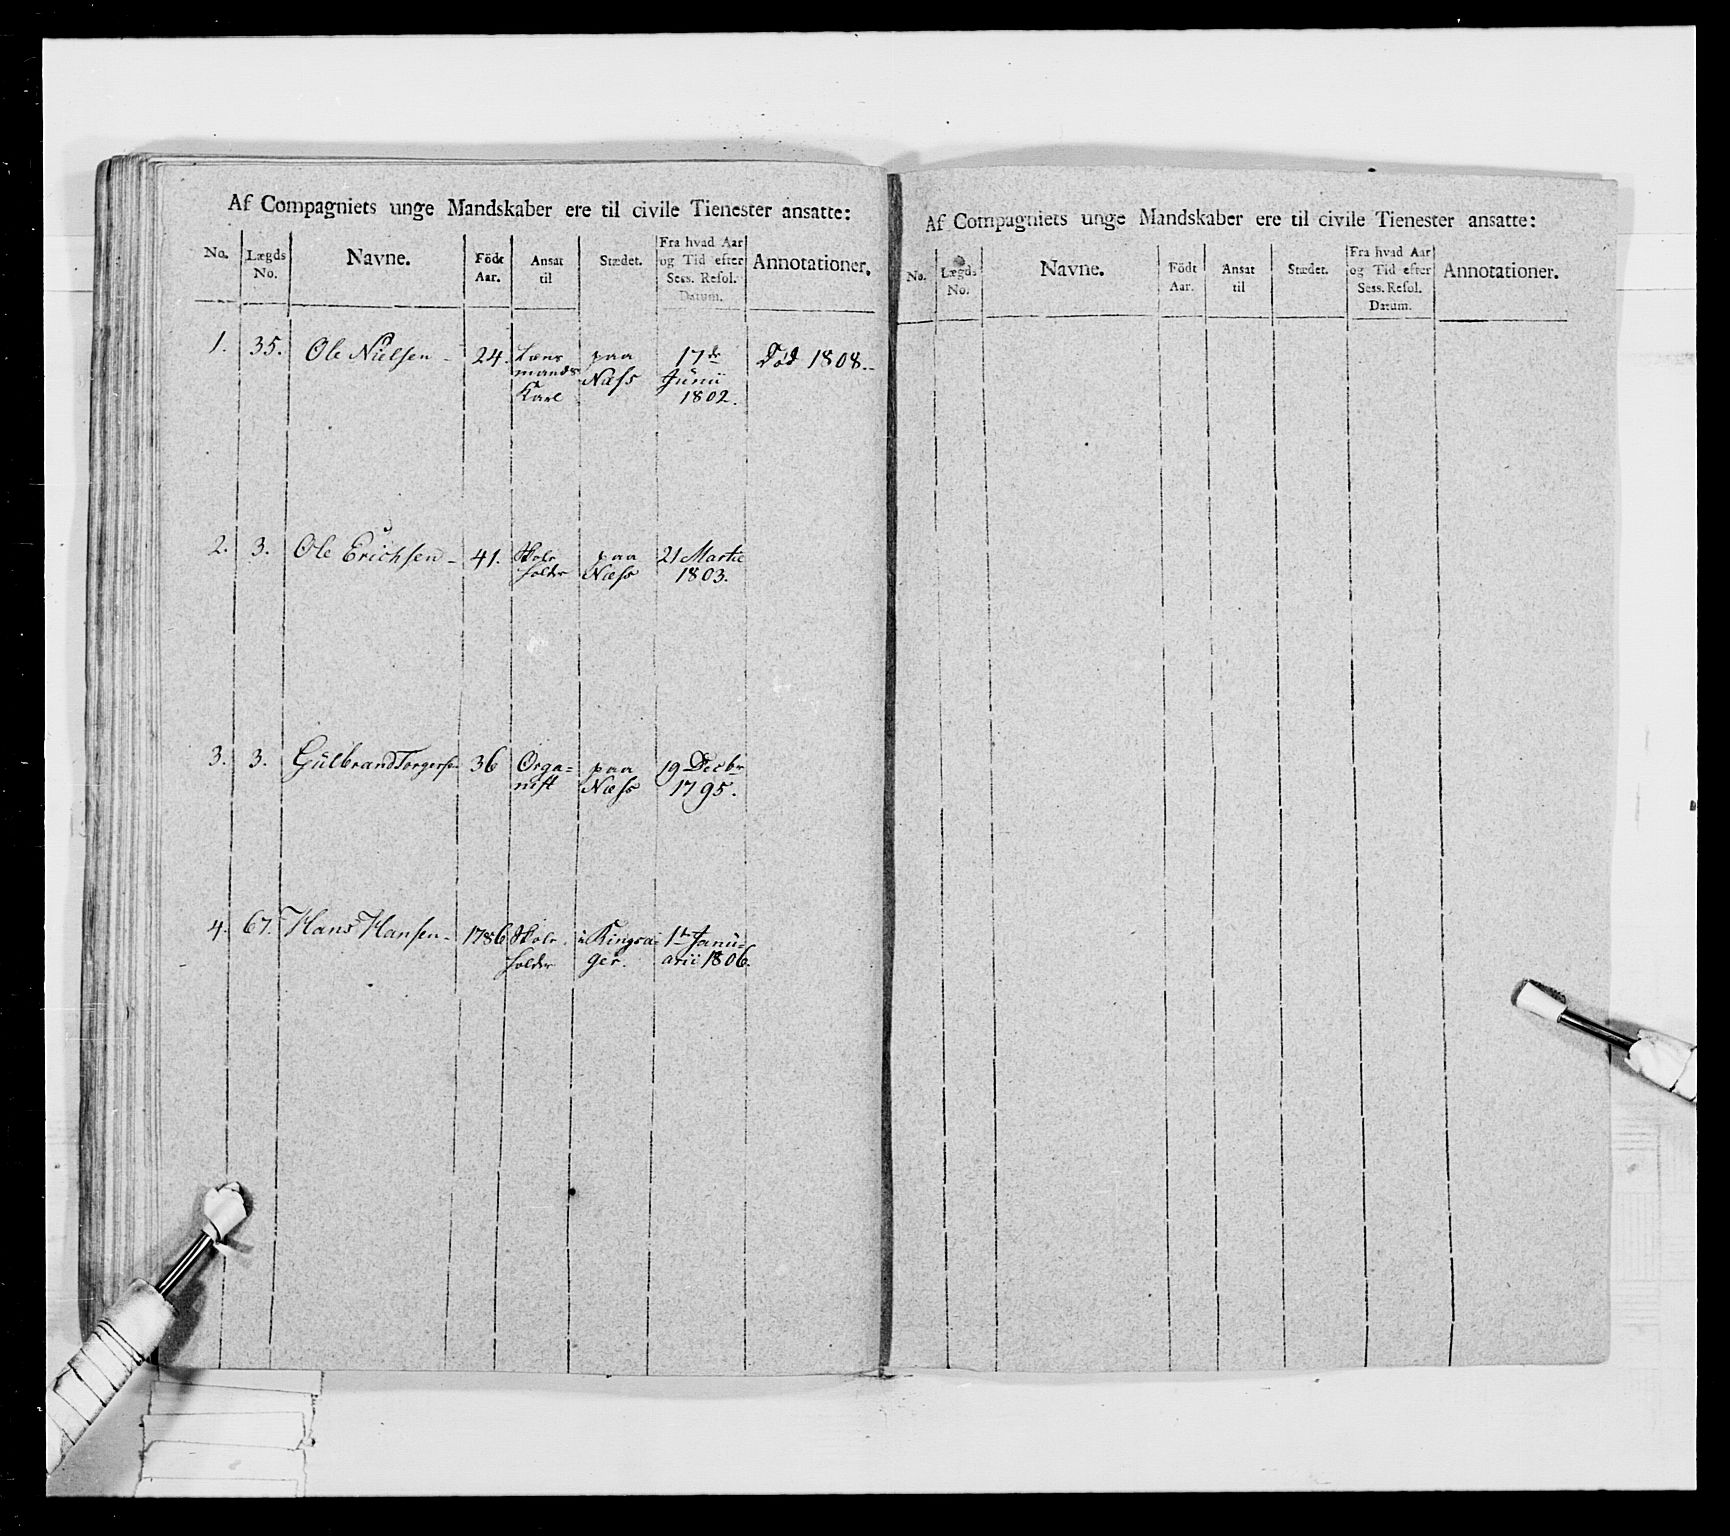 Af Compagniets unge Mandskaber ere til civile Tienester ansatte:
No. Lægds No. Navne. Födt Aar. Ansat til Stædet. Fra hvad Aar og Tid efter Sess. Resol. Datum. Annotationer.
1. 35. Ole Nielsen - 24. Læns paa 17de Død 1808.
mands Næss Junii
Karl 1802.
2. 3. Ole Erichsen - 41. Skole paa 21 Martii
holder Næss 1803.
3. 3. Gulbrand Torgersen 36 Orga= paa 19 Decbr
nist Næss 1795.
4. 67. Hans Hansen - 1786 Skole i Ringsa= 1te Janu=
holder ger. arii 1806.
Af Compagniets unge Mandskaber ere til civile Tienester ansatte:
No. Lægds No. Navne. Födt Aar. Ansat til Stædet. Fra hvad Aar og Tid efter Sess. Resol. Datum. Annotationer.